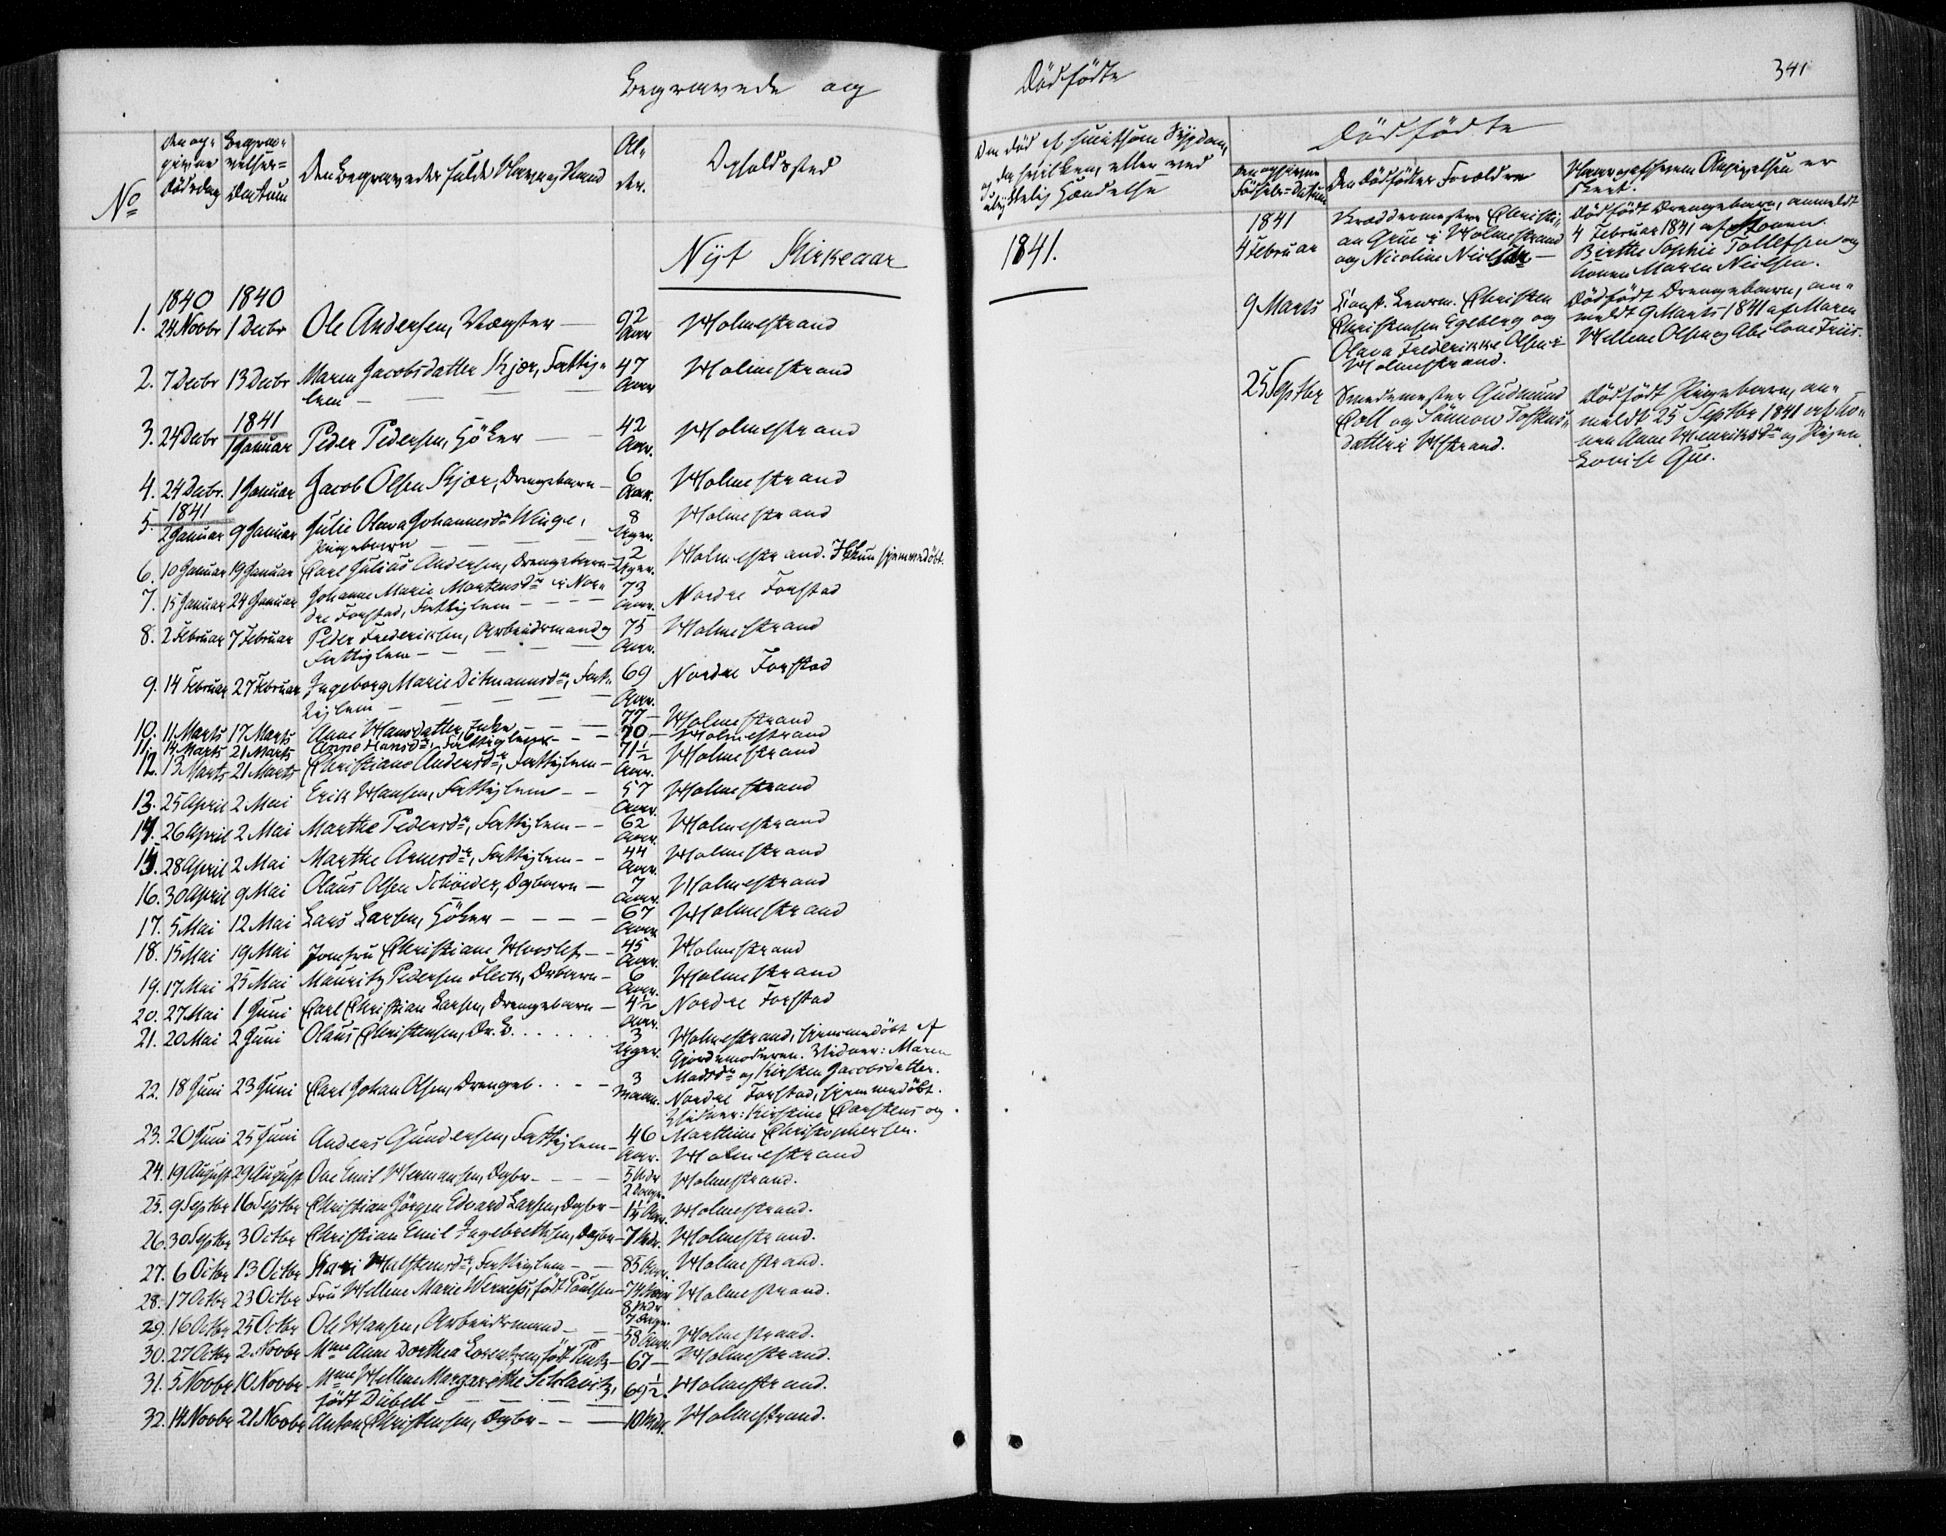 Begravede og
Dödfödte
341
No
Den opgivne Dödsdag
Begravelses-Datum
Den Begravedes fulde Navn og Stand
Alder.
Opholdssted
Den död af smitsom Sygdom, og da hvilken, eller ved ulykkelig Hændelse
Dödfödte
Den opgivne Födsels-Datum
Den Dödfödtes Forældre
Naar og af hvem Angivelsen er skeet.
Nyt Kirkeaar
1841.
1840 1840
1. 24 Novbr 1 Decbr Ole Andersen, Vægter — 92 Aar Holmestrand
2. 7 Decbr 13 Decbr Maren Jacobsdatter Kjær, Fattig-
lem — 47 Aar Holmestrand
1841
3. 24 Decbr 1 Januar Peder Pedersen, Höker — 42 Aar. Holmestrand
4. 24 Decbr. 1 Januar Jacob Olsen Kjær, Drengebarn — 6 Aar. Holmestrand
1841
5. 2 Januar 9 Januar Julie Olava Johannesdr Winge,
Pigebarn — 8 Uger. Holmestrand
6. 10 Januar 19 Januar Carl Julius Andersen, Drengebarn — 2 Uger. Holmestrand. Kun hjemmedöbt.
7. 15 Januar 24 Januar Johanne Marie Mortensdr i Nor-
dre Forstad, Fattiglem — 73 Aar. Nordre Forstad
8. 2 Februar 7 Februar Peder Frederiksen, Arbeidsmand og
Fattiglem — 75 Aar. Holmestrand
9. 14 Februar 27 Februar Ingeborg Marie Ditmannsdr, Fat-
tiglem — 69 Aar. Nordre Forstad
10. 11 Marts 17 Marts Anne Hansdatter, Enke — 77 — Holmestrand
11. 14 Marts 21 Marts Anne Hansdr, Fattiglem — 70 — Holmestrand
12. 13 Marts 21 Marts Christiane Andersdr, Fattiglem — 71½ Aar. Holmestrand
13. 25 April 2 Mai Erik Hansen, Fattiglem — 57 Aar. Holmestrand
14. 26 April 2 Mai Marthe Pedersdr, Fattiglem — 62 Aar. Holmestrand
15. 28 April 2 Mai Marthe Arnesdr, Fattiglem — 44 Aar. Holmestrand
16. 30 April 9 Mai Olaus Olsen Schöider, Dgbarn — 7 Aar. Holmestrand
17. 5 Mai 12 Mai Lars Larsen, Höker — 67 Aar. Holmestrand
18. 15 Mai 19 Mai Jomfru Christiane Horslef — 45 Aar. Holmestrand
19. 17 Mai 25 Mai Mauritz Pedersen Fleck, Drbarn — 6 Aar. Holmestrand
20. 27 Mai 1 Juni Carl Christian Larsen, Drengebarn — 4½ Aar. Nordre Forstad
21. 20 Mai 2 Juni Olaus Christensen, Dr. B. . . . 3 Uger. Holmestrand, hjemmedöbt af
Gjordemoderen. Vidner: Maren
Madsdr og Kirsten Jacobsdatter.
22. 18 Juni 23 Juni Carl Johan Olsen, Drengeb. . . 3 Maan. Nordre Forstad, hjemmedöbt.
Vidner: Kirstine Carstens og
Marthine Christophersen.
23. 20 Juni 25 Juni Anders Gundersen, Fattiglem — 46 Aar. Holmestrand
24. 19 August 29 August Ove Emil Hermansen, Dgbr — 5 Mdr 2 Dage. Holmestrand.
25. 9 Septbr 16 Septbr Christian Jörgen Edvard Larsen, Dgbr — 1¼ Aar. Holmestrand.
26. 30 Septbr 3 Octbr Christian Emil Ingebrethsen, Dgbr — 7 Mdr. Holmestrand.
27. 6 Octbr 13 Octbr Kari Halstensdr, Fattiglem — 85 Aar. Holmestrand.
28. 17 Octbr 23 Octbr Fru Hellene Marie Werness, född Paulsen — 74 Aar 8 Mdr 7 Dage. Holmestrand.
29. 16 Octbr 25 Octbr Ole Hansen, Arbeidsmand — 58 Aar. Holmestrand.
30. 27 Octbr 2 Novbr Mme Anne Dorthea Lorentzen, född Pentz — 67 — Holmestrand.
31. 5 Novbr 10 Novbr Mme Hellene Margrethe Schlavitz,
född Dübell — 69½. Holmestrand.
32. 14 Novbr 21 Novbr Anton Christensen, Dgbr — 10 Mdr. Holmestrand.
1841
4 Februar
Skræddermester Christi-
an Grue i Holmestrand
og Nicoline Nielsdr —
Dödfödt Drengebarn, anmeldt
4 Februar 1841 af Konen
Birthe Sophie Tollefsen og
Konen Maren Nielsen.
9 Marts
Const. Lensm. Christen
Christensen Egeberg og
Olava Frederikke Olsen i
Holmestrand.
Dödfödt Drengebarn, an-
meldt 9 Marts 1841 af Maren
Hellene Olsen og Abelone Friis.
25 Septbr
Smedemester Gudmund
Poll og Sönnow Foskus-
datter i Hstrand.
Dödfödt Pigebarn, an-
meldt 25 Septbr 1841 af Ko-
nen Anne Henriksdr og Pigen
Lovise Gue.